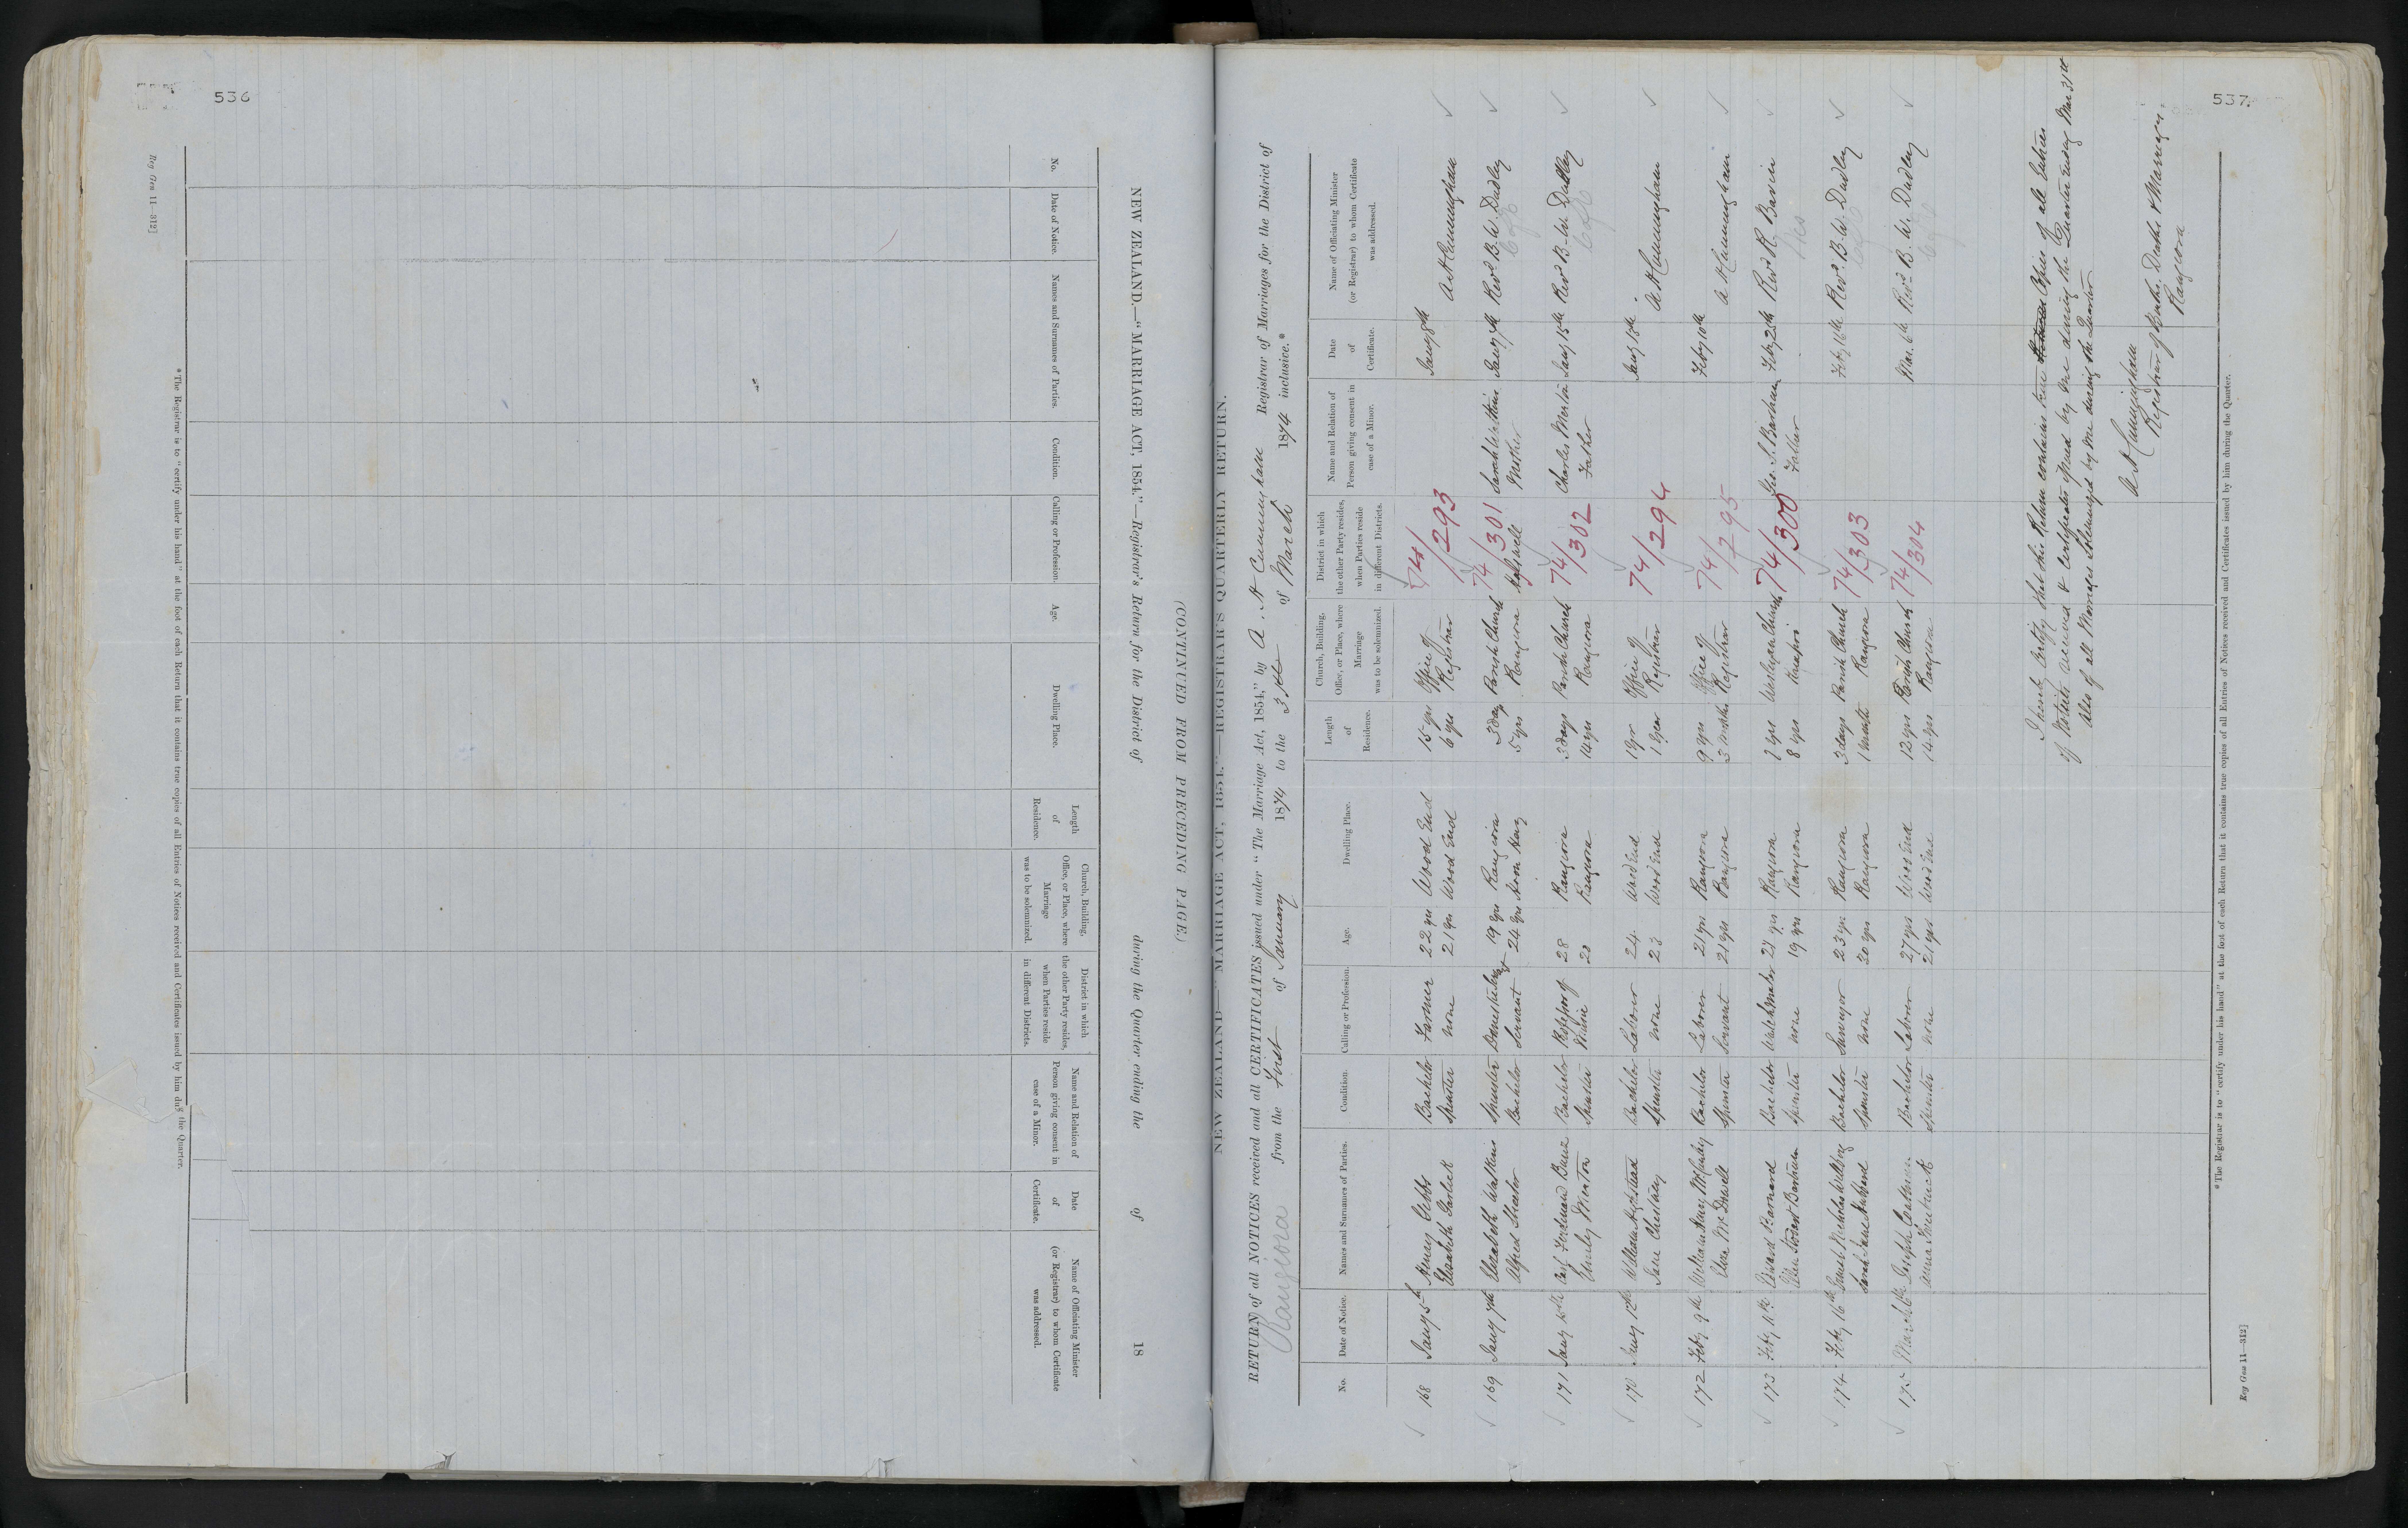 536
NEW ZEALAND.—"MARRIAGE ACT, 1854."—Registrar's Return for the District of during the Quarter ending the of 18
(CONTINUED FROM PRECEDING PAGE.)
No.
Date of Notice.
Names and Surnames of Parties.
Condition.
Calling or Profession.
Age.
Dwelling Place.
Length
of
Residence.
Church, Building,
Office, or Place, where
Marriage
was to be solemnized.
District in which
the other Party resides,
when Parties reside
in different Districts.
Name and Relation of
Person giving consent in
case of a Minor.
Date
of
Certificate.
Name of Officiating Minister
(or Registrar) to whom Certificate
was addressed.
* The Registrar is to "certify under his hand" at the foot of each Return that it contains true copies of all Entries of Notices received and Certificates issued by him du g the Quarter.
Reg Gen 11—312]
537.
NEW ZEALAND—"MARRIAGE ACT, 1854."—REGISTRAR'S QUARTERLY RETURN.
RETURN of all NOTICES received and all CERTIFICATES issued under "The Marriage Act, 1854," by A. H Cunningham Registrar of Marriages for the District of
Rangiora from the First of January 1874 to the 31st of March 1874 inclusive.*
No.
Date of Notice.
Names and Surnames of Parties.
Condition.
Calling or Profession.
Age.
Dwelling Place.
Length
of
Residence.
Church, Building,
Office, or Place, where
Marriage
was to be solemnized.
District in which
the other Party resides,
when Parties reside
in different Districts.
Name and Relation of
Person giving consent in
case of a Minor.
Date
of
Certificate.
Name of Officiating Minister
(or Registrar) to whom Certificate
was addressed.
168 Jany 5th Henry Gibbs Bachelor Farmer 22 yrs Wood End 15 yrs Office of 74/293 Jany 8th
Elizabeth Garlick Spinster none 21 yrs Wood End 6 yrs Registrar A H Cunningham
169 Jany 7th Elizabeth Watkins Spinster 19 yrs Rangiora 3 days Parish Church 74/301 Sarah Watkins Jany 7th Revd B. W. Dudley
Alfred Bachelor Servant 24 yrs 5 yrs Rangiora Mother C of E
171 Jany 15th Carl Ferdinand Bachelor 28 Rangiora 3 days Parish Church 74/302 Charles Merton Jany 15th Revd B. W. Dudley
Emily Merton Spinster 20 Rangiora 14 yrs Rangiora Father C of E
170 Jany 12th William Bachelor Laborer 24 Wood End 1 yr Office of 74/294 Jany 15th
Jane Spinster none 23 Wood End 1 year Registrar A H Cunningham
172 Feby 9th William Henry Bachelor Laborer 21 yrs Rangiora 9 yrs Office of 74/295 Feby 10th
Eliza Spinster Servant 21 yrs Rangiora 3 months Registrar A H Cunningham
173 Feby 11th Edward Barnard Bachelor Watchmaker Rangiora 7 yrs Wesleyan Church 74/300 Geo. S. Barham Feby 25th Revd R. Bavin
Ellen Barham Spinster none 19 yrs Rangiora 8 yrs Kaiapoi Father Wes
174 Feby 16th Nicholas Bachelor Surveyor 23 yrs Rangiora 3 days Parish Church 74/303 Feby 16th Revd. B. W. Dudley
Sarah Jane Spinster none 20 yrs Rangiora 1 month Rangiora C of E
175 March 6th Joseph Bachelor Laborer 27 yrs Wood End 12 yrs Parish Church 74/304 Mar. 6th Revd B. W. Dudley
Anna Spinster none 21 yrs Wood End 14 yrs Rangiora C of E
I hereby Certify that this Return contains true Copies of all Entries
of Notices received & Certificates issued by me during the Quarter ending Mar 31st
Also of all Marriages Solemnized by me during the Quarter
A H Cunningham
Registrar of Births, Deaths & Marriages,
Rangiora
* The Registrar is to "certify under his hand" at the foot of each Return that it contains true copies of all Entries of Notices received and Certificates issued by him during the Quarter.
Reg Gen 11—312]